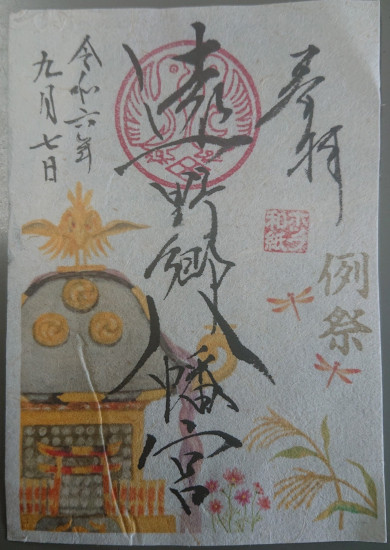 奉拝
例祭
和紙
遠野郷八幡宮
令和六年
九月七日